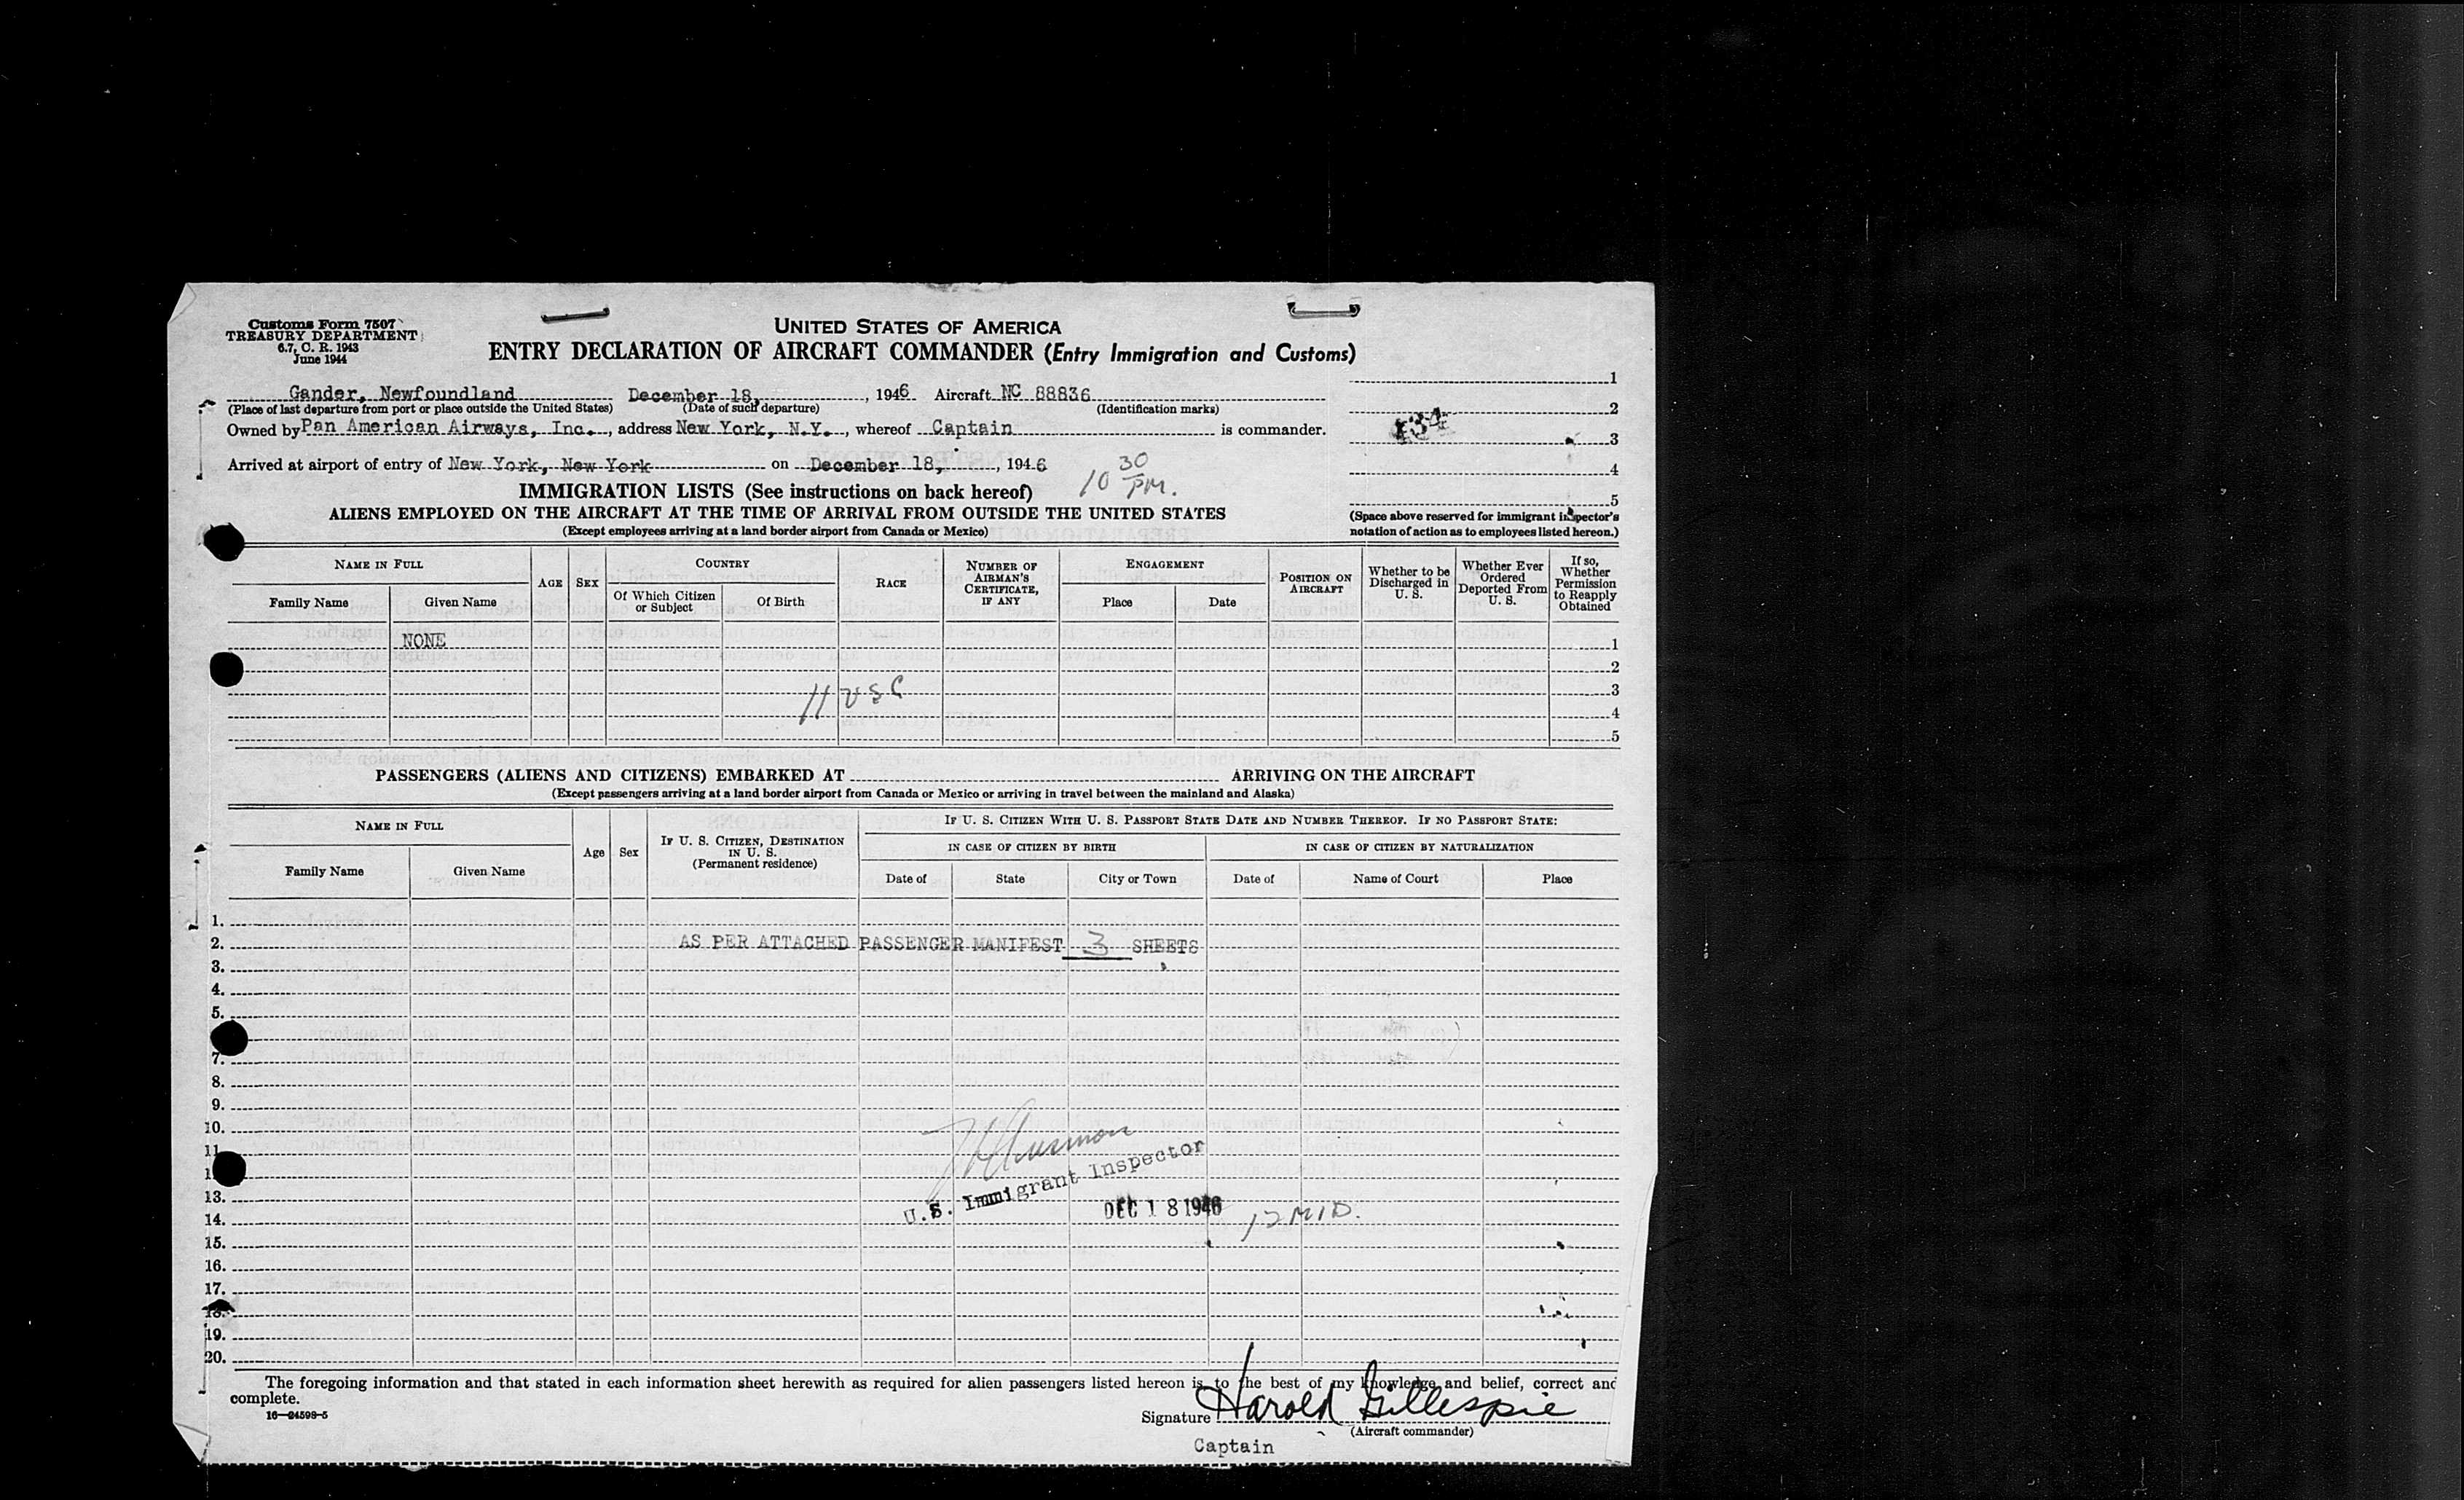 Customs Form 7507
TREASURY DEPARTMENT
6.7, C. R. 1943
June 1944
UNITED STATES OF AMERICA
ENTRY DECLARATION OF AIRCRAFT COMMANDER (Entry Immigration and Customs)
Gander, Newfoundland December 18, , 1946 Aircraft NC 88836
(Place of last departure from port or place outside the United States) (Date of such departure) (Identification marks)
Owned by Pan American Airways, Inc. , address New York, N.Y. , whereof Captain is commander.
Arrived at airport of entry of New York, New York on December 18, , 1946
10 30 PM.
1
2
434
3
4
5
(Space above reserved for immigrant inspector's notation of action as to employees listed hereon.)
IMMIGRATION LISTS (See instructions on back hereof)
ALIENS EMPLOYED ON THE AIRCRAFT AT THE TIME OF ARRIVAL FROM OUTSIDE THE UNITED STATES
(Except employees arriving at a land border airport from Canada or Mexico)
NAME IN FULL
Family Name Given Name
AGE SEX
COUNTRY
Of Which Citizen or Subject
Of Birth
RACE
NUMBER OF AIRMAN'S CERTIFICATE, IF ANY
ENGAGEMENT
Place Date
POSITION ON AIRCRAFT
Whether to be Discharged in U. S.
Whether Ever Ordered Deported From U. S.
If so, Whether Permission to Reapply Obtained
NONE
1
2
11 USC
3
4
5
PASSENGERS (ALIENS AND CITIZENS) EMBARKED AT ARRIVING ON THE AIRCRAFT
(Except passengers arriving at a land border airport from Canada or Mexico or arriving in travel between the mainland and Alaska)
NAME IN FULL
Family Name Given Name
Age Sex
IF U. S. CITIZEN, DESTINATION IN U. S. (Permanent residence)
IF U. S. CITIZEN WITH U. S. PASSPORT STATE DATE AND NUMBER THEREOF. IF NO PASSPORT STATE:
IN CASE OF CITIZEN BY BIRTH IN CASE OF CITIZEN BY NATURALIZATION
Date of State City or Town Date of Name of Court Place
1.
2. AS PER ATTACHED PASSENGER MANIFEST 3 SHEETS
3.
4.
5.
7.
8.
9.
10.
11
1
13.
U.S. Immigrant Inspector
14. DEC 18 1946 12 MID.
15.
16.
17.
18.
19.
20.
The foregoing information and that stated in each information sheet herewith as required for alien passengers listed hereon is, to the best of my knowledge and belief, correct and
complete.
16—24598-5
Signature Harold Gillespie
(Aircraft commander)
Captain